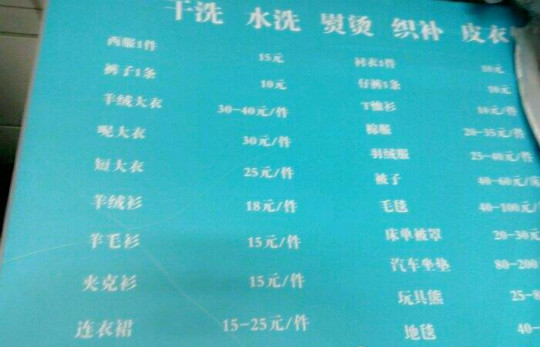 干洗 水洗 熨烫 织补 皮衣
西服1件 15元
裤子1条 10元
羊绒大衣 30-40元/件
呢大衣 30元/件
短大衣 25元/件
羊绒衫 18元/件
羊毛衫 15元/件
夹克衫 15元/件
连衣裙 15-25元/件
衬衣1件 10元
仔裤1条 10元
T恤衫 10元/件
棉服 20-35元/件
羽绒服 25-40元/件
被子 40-60元/床
毛毯 40-100元/
床单被罩 20-30元
汽车坐垫 80-200
玩具熊 25-8
地毯 40-